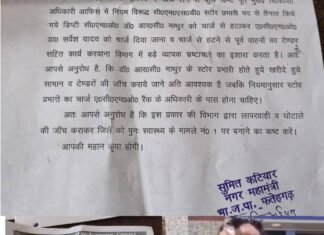 अधिकारी आफिस में नियम विरुद्ध सी०एम०एस०डी० स्टोर प्रभारी पद से तैनात किये
गये डिप्टी सी०एम०ओ० डॉ० आर०सी० माथुर को चार्ज से हटाकर ए०सी०एम०ओ०
डा० सर्वेश यादव को चार्ज दिया जाना व चार्ज से हटने से पूर्व वाहनों का टेण्डर
सहित कार्य करवाना विभाग में बडे व्यापक भ्रष्टाचार का इशारा करता है। अतः
आपसे अनुरोध है, कि डॉ० आर०सी० माथुर के स्टोर प्रभारी होते हुये खरीदे हुये
सामान व टेण्डरों की जाँच कराये जाने अति आवश्यक है जबकि नियमानुसार स्टोर
प्रभारी का चार्ज ए०सी०एम०ओ० रैंक के अधिकारी के पास होना चाहिए।
अतः आपसे अनुरोध है कि इस प्रकार की विभाग द्वारा लापरवाही व घोटाले की
जाँच कराकर जिले को पुनः स्वास्थ्य के मामले नं० 1 पर बनाने का कष्ट करें।
आपकी महान कृपा होगी।
सुमित कटियार
नगर महामंत्री
भा.ज.पा. फतेहगढ़